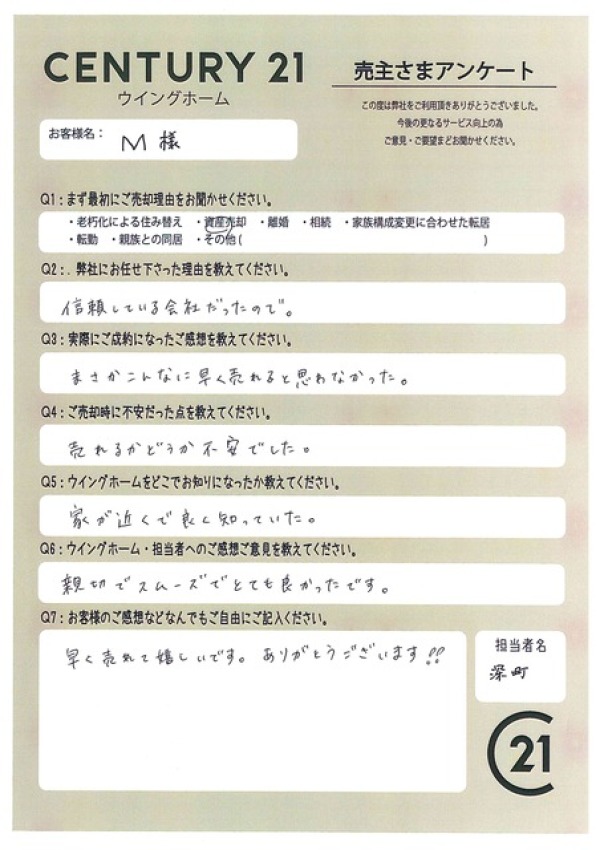 CENTURY 21
ウイングホーム
売主さまアンケート
この度は弊社をご利用頂きありがとうございました。
今後の更なるサービス向上の為
ご意見・ご要望まどお聞かせください。
お客様名：
M 様
Q1：まず最初にご売却理由をお聞かせください。
・老朽化による住み替え ・資産売却 ・離婚 ・相続 ・家族構成変更に合わせた転居
・転勤 ・親族との同居 ・その他 ( )
Q2：. 弊社にお任せ下さった理由を教えてください。
信頼している会社だったので。
Q3：実際にご成約になったご感想を教えてください。
まさかこんなに早く売れると思わなかった。
Q4：ご売却時に不安だった点を教えてください。
売れるかどうか不安でした。
Q5：ウイングホームをどこでお知りになったか教えてください。
家が近くで良く知っていた。
Q6：ウイングホーム・担当者へのご感想ご意見を教えてください。
親切でスムーズでとても良かったです。
Q7：お客様のご感想などなんでもご自由にご記入ください。
早く売れて嬉しいです。ありがとうございます!!
担当者名
深町
C21